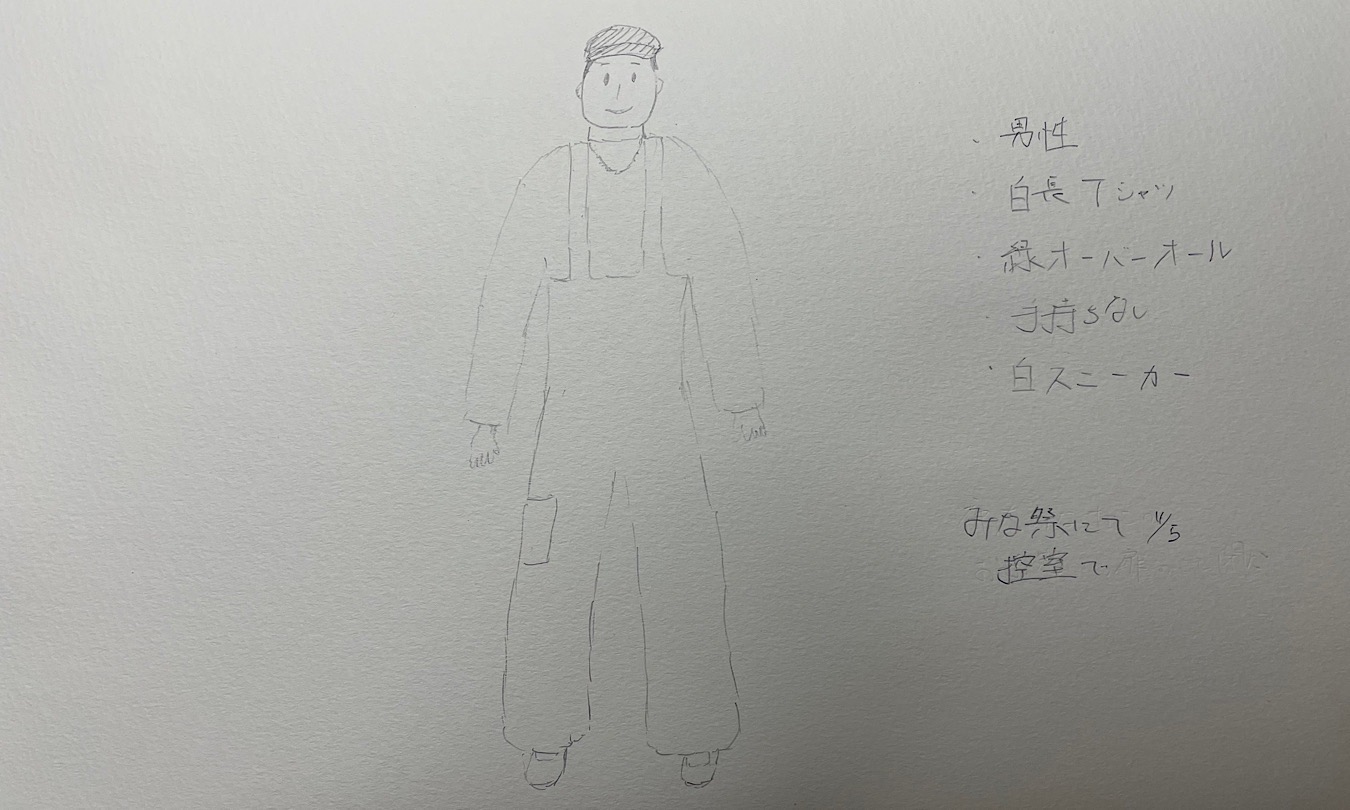 ・男性
・白長Tシャツ
・緑オーバーオール
・手持ちなし
・白スニーカー
みな祭にて 11/5
控室で